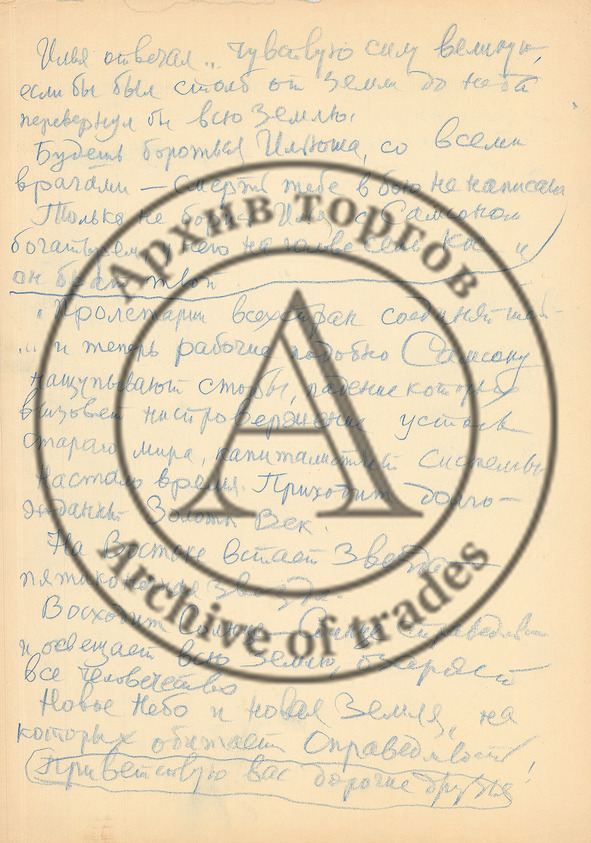 Илья отвечал „ чувствую силу великую,
если бы был столб от земли до неба
перевернул бы всю землю.
Будешь бороться Илюша, со всеми
врагами — смерть тебе в бою не написана
Только не борись Илья с Самсоном
богатырем у него на голове семь
он брат твой
"Пролетарии всех стран соединяйтесь
... и теперь рабочие подобно Самсону
нащупывают столбы, падение которых
вызовет ниспровержение
старого мира, капиталистической системы
Настало время. Приходит долго-
жданный Золотой Век.
На Востоке встает Звезда —
пятиконечная звезда.
Восходит Солнце — Солнце справедливости
и освещает всю Землю, озаряет
все человечество
Новое Небо и новая Земля, на
которых обитает Справедливость!
Приветствую вас дорогие друзья
Архив торгов
A
Archive of trades